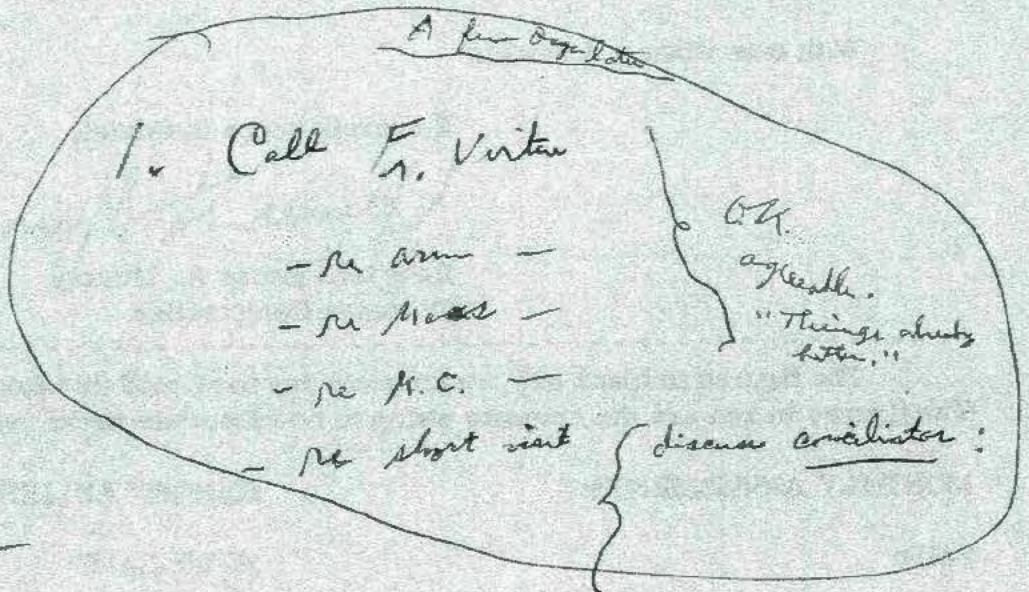 A few days later
1. Call Fr. Virtue
- re arm -
- re Mass -
- re K.C. -
- re short visit
O.K.
agreeable.
"Things already
better."
discuss conciliator: